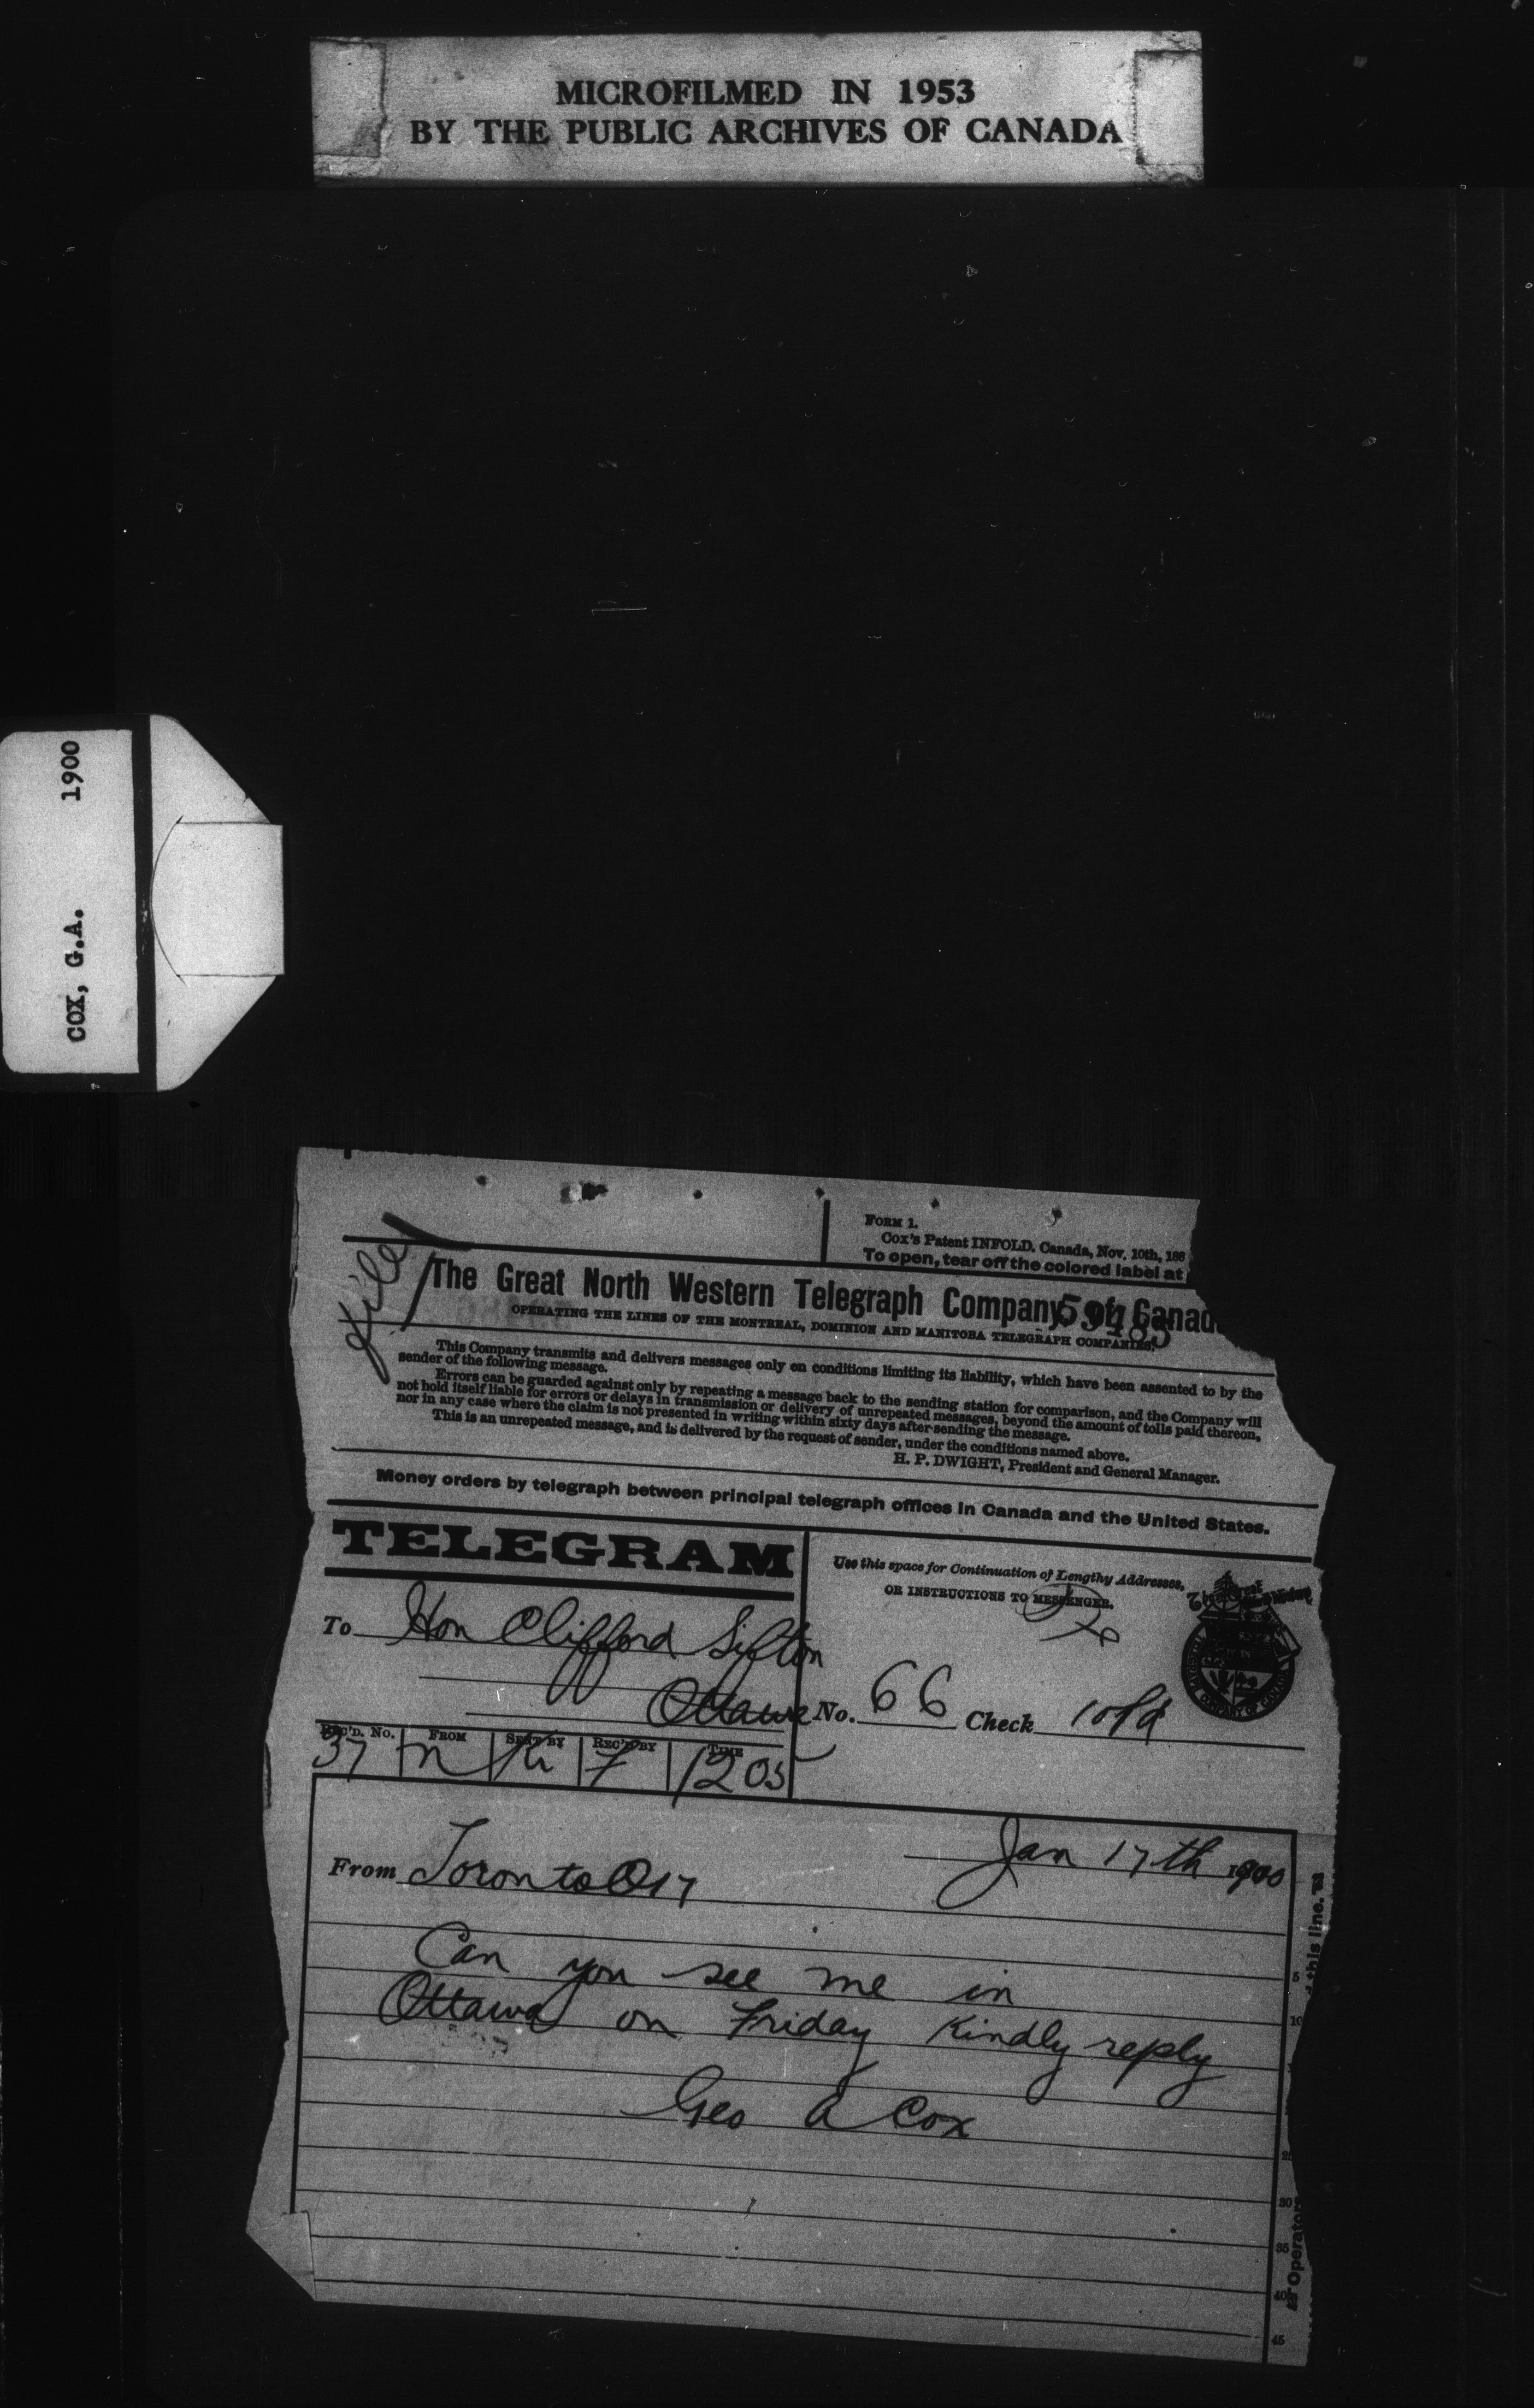 MICROFILMED IN 1953
BY THE PUBLIC ARCHIVES OF CANADA
COX, G.A. 1900
File
FORM 1.
Cox's Patent INFOLD. Canada, Nov. 10th, 188
To open, tear off the colored label at
The Great North Western Telegraph Company of Canad
59485
OPERATING THE LINES OF THE MONTREAL, DOMINION AND MANITOBA TELEGRAPH COMPANIES.
This Company transmits and delivers messages only on conditions limiting its liability, which have been assented to by the
sender of the following message.
Errors can be guarded against only by repeating a message back to the sending station for comparison, and the Company will
not hold itself liable for errors or delays in transmission or delivery of unrepeated messages, beyond the amount of tolls paid thereon,
nor in any case where the claim is not presented in writing within sixty days after sending the message.
This is an unrepeated message, and is delivered by the request of sender, under the conditions named above.
H. P. DWIGHT, President and General Manager.
Money orders by telegraph between principal telegraph offices in Canada and the United States.
TELEGRAM
Use this space for Continuation of Lengthy Addresses,
OR INSTRUCTIONS TO MESSENGER.
To Hon Clifford Sifton
Ottawa
No. 66 Check 10pd
REC'D. No. FROM SENT BY REC'D BY TIME
37 n F 1205
From Toronto O 17
Jan 17th 1900
Can you see me in
Ottawa on Friday Kindly reply
Geo A Cox
5
10
30
35
40
45
this line.
Operators